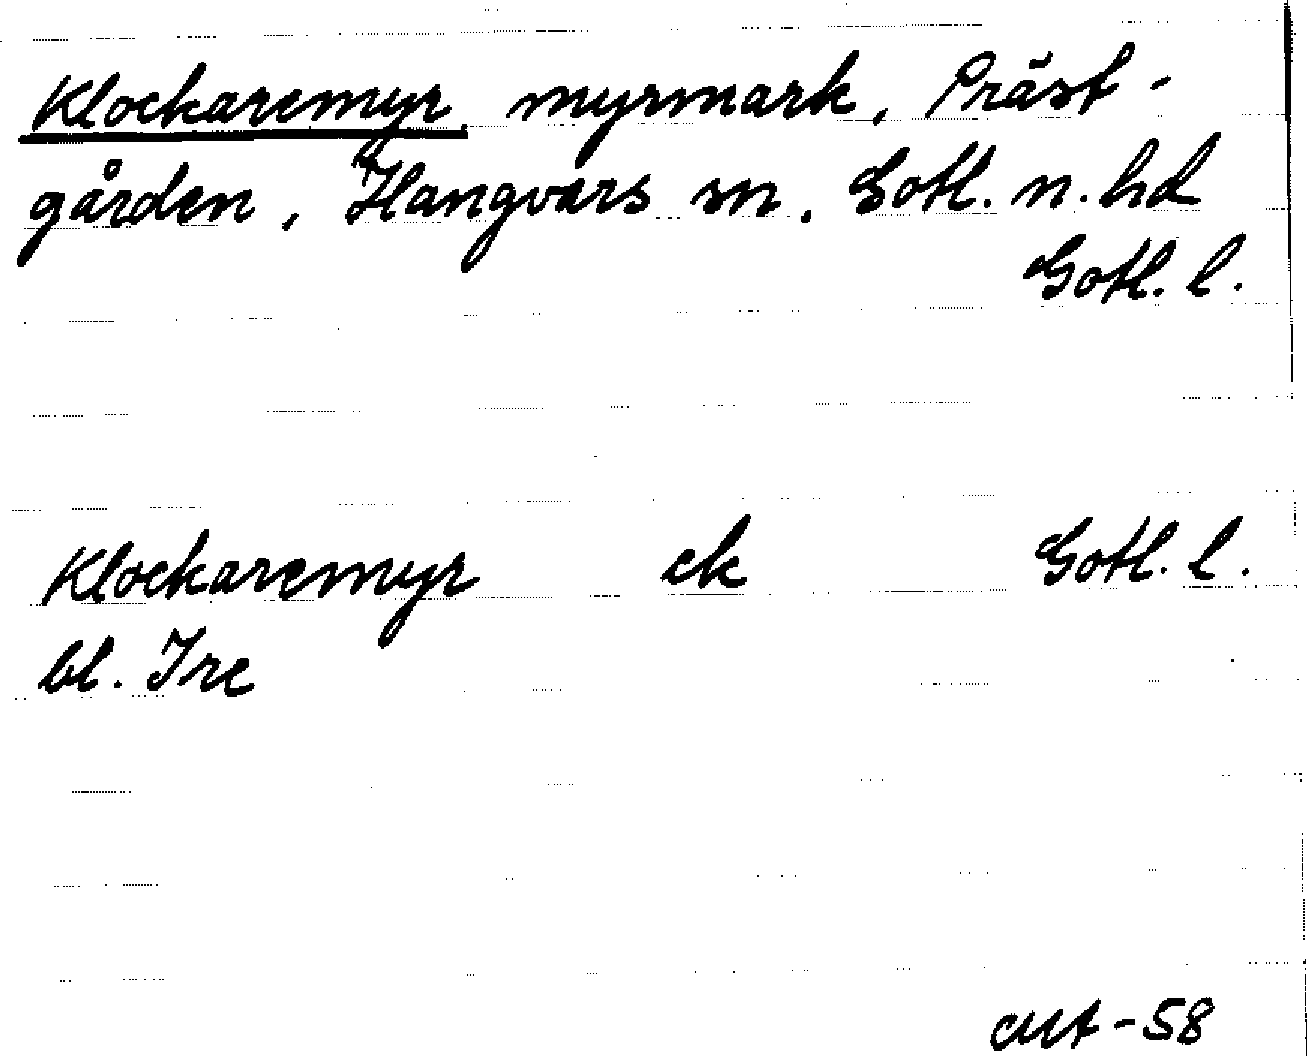 Klockaremyr, myrmark, Präst-
gården, Hangvars sn, Gotl. n. hd
Gotl. l.
Klockaremyr ek Gotl. l.
bl. Ire
-58